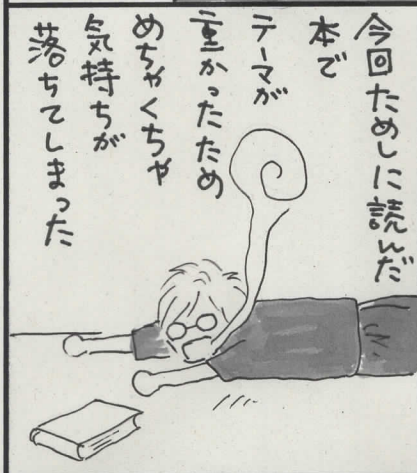 今回ためしに読んだ
本で
テーマが
重かったため
めちゃくちゃ
気持ちが
落ちてしまった